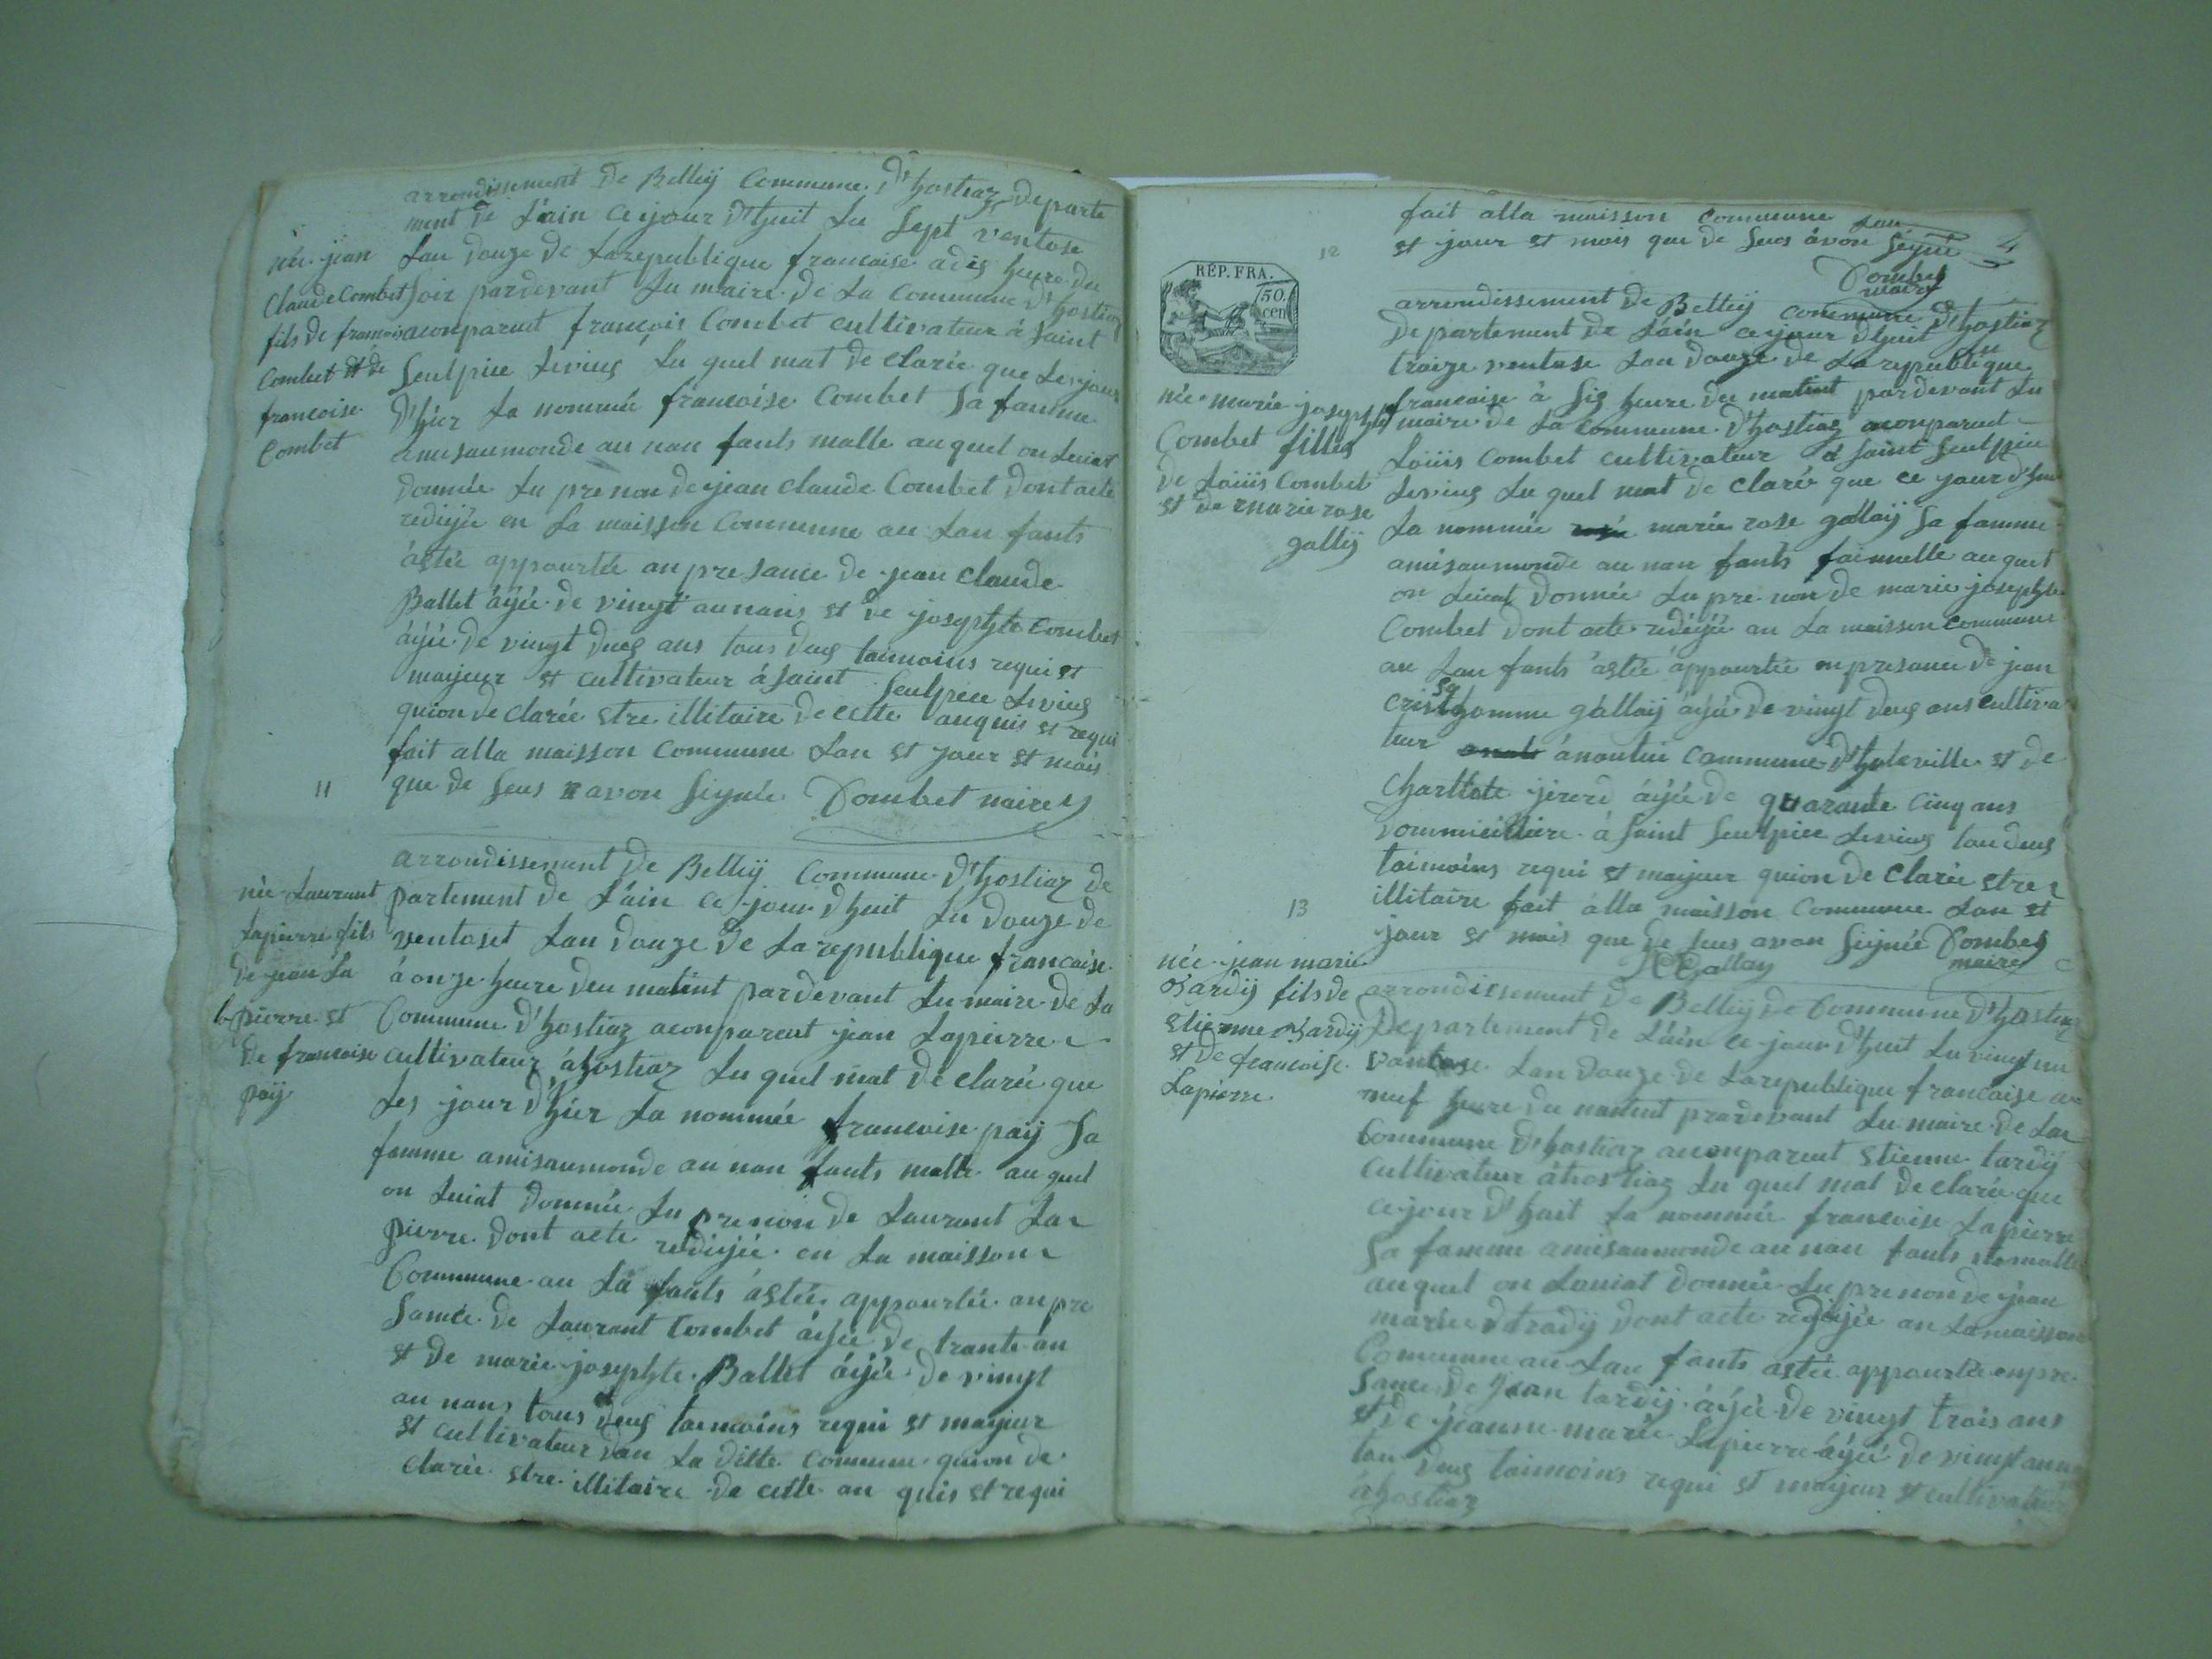 arrondissement de Belleÿ Commune d'hostiaz departe
ment de Lain ce jour d'huit Lu Sept ventose
Lan douze de La republique francaise a dis heure du
soir pardevant Lu maire de La Commune d'hostiaz
aconparut françois Combet cultivateur à Saint
Seulpice Levieus Lu quel mat de clarée que Les jour
d'hier La nommée françoise Combet Sa famme
amisaumonde au nan fants malle auquel on Luiat
donnée Lu prenon de jean claude Combet dont acte
redijée en La maisson Commune au Lan fants
astée appourtée anpresance de jean claude
Ballet âjée de vingt aunans et de josephte Combet
âjée de vingt deus ans tous deus taimoins requi et
maijeur et cultivateur à Saint Seulpice Levieus
quion declarée estre illitaire de cette anquis et requi
fait alla maisson Commune Lan et jour et mois
que de Seus avon Signée Combet maire
née jean
Claude Combet
fils de francois
Combet et de
francoise
Combet
11
arrondissement de Belleÿ Commune d'hostiaz de
partement de Lain ce jour d'huit Lu douze de
ventoset Lan douze de La republique francaise
à onze heure deu matint pardevant Lu maire de La
Commune d'hostiaz aconparut jean Lapierre
cultivateur àhostiaz Lu quel mat declarée que
Les jour d'hier La nommée francoise paÿ Sa
famme amisaumonde au nan fants malle auquel
on Luiat donnée Lu prenon de Laurant La
pierre dont acte redijée en La maisson
Commune au La fants astée appourtée anpre
sance de Laurant Combet âjée de trante an
et de marie josephte Ballet âjée de vingt
au nans tous deus taimoins requi et maijeur
et cultivateur dan La ditte Commune quion de
clarée estre illitaire de cette anquis et requi
née Laurant
Lapierre fils
de jean La
pierre et
de francoise
paÿ
fait alla maisson Commune Lan
et jour et mois que de Seus avon Signée
Combet
maire
4
12
RÉP. FRA.
50.
cen
arrondissement de Belleÿ Commune d'hostiaz
departement de Lain ce jour d'huit Lu
traize ventose Lan douze de La republique
francaise à Sis heure deu matint pardevant Lu
maire de La Commune d'hostiaz aconparut
Loüis Combet cultivateur à Saint Seulpice
Levieus Lu quel mat de clarée que ce jour d'huit
La nommée marie rose gallaÿ Sa famme
amisaumonde au nan fants faimelle auquel
on Luiat donnée Lu pre non de marie josephte
Combet dont acte redijée an La maisson Commune
au Lan fants astée appourtée enpresance de jean
cristhomme gallaÿ âjée de vingt deus ans cultiva
teur à nantui Commune d'hoteville et de
Charllote jerord âjée de quarante cinq ans
dommiciliaire à Saint Seulpice Levieus tou deus
taimoins requi et maijeur quion de clarée estre
illitaire fait alla maisson Commune Lan et
jour et mois que de Seus avon Signée Combet
maire
Gallay
née marie josephte
Combet filles
de Loüis Combet
et de marie rose
galleÿ
13
arrondissement de Belleÿ de Commune d'hostiaz
Departement de Lain ce jour d'huit Lu vingt un
vantose Lan douze de La republique francaise a
neuf heure du matint pardevant Lu maire de La
Commune d'hostiaz aconpareut etienne tardÿ
cultivateur àhostiaz Lu quel mat declarée que
ce jour d'huit La nommée francoise Lapierre
Sa famme amisaumonde au nan fants malle
auquel on Luniat donnée Lu prenon de jean
marie tradÿ dont acte redijée an La maisson
Commune au Lan fants astée appourtée enpre
sance de jean tardÿ âjée de vingt trois ans
et de jeanne marie Lapierre âjée de vingt aunans
tou deus taimoins requi et maijeur et cultivateur
àhostiaz
née jean marie
tardÿ fils de
etienne tardÿ
et de francoise
Lapierre